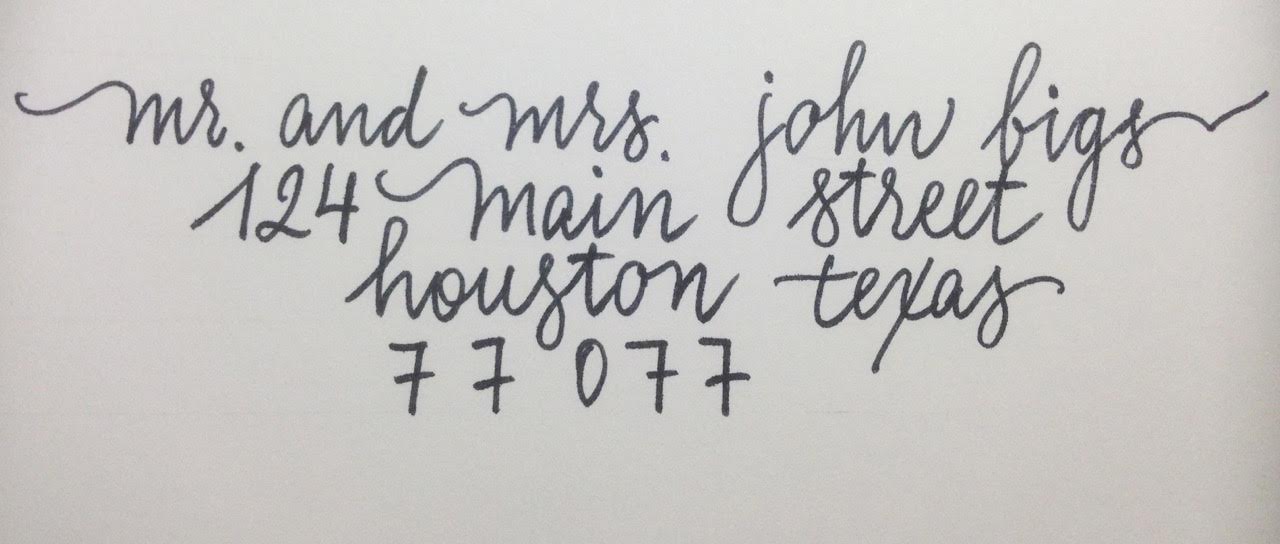 mr. and mrs. john bigs
124 main street
houston texas
77077